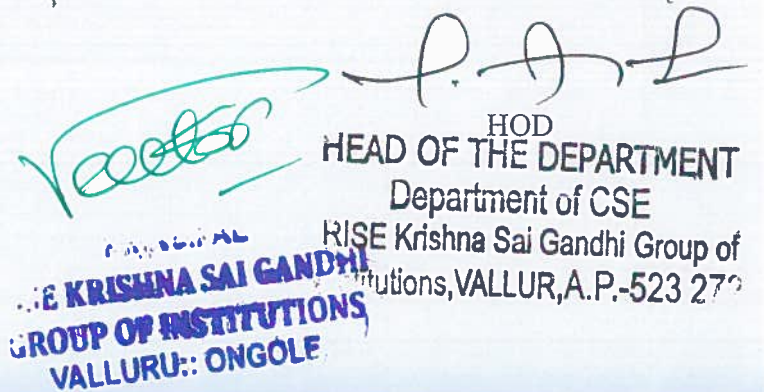 HOD
HEAD OF THE DEPARTMENT
Department of CSE
RISE Krishna Sai Gandhi Group of
tutions,VALLUR,A.P.-523 27
KRISHNA SAI GANDHI
GROUP OF INSTITUTIONS
VALLURU:: ONGOLE